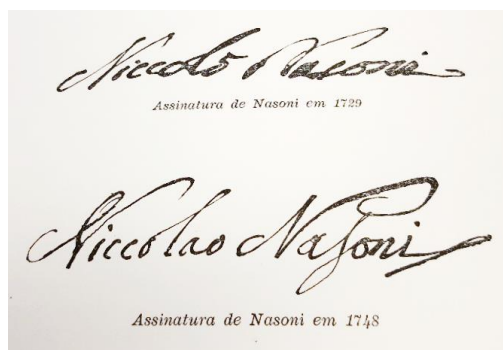 Niccolò Nasoni
Assinatura de Nasoni em 1729
Niccolao Nasoni
Assinatura de Nasoni em 1748